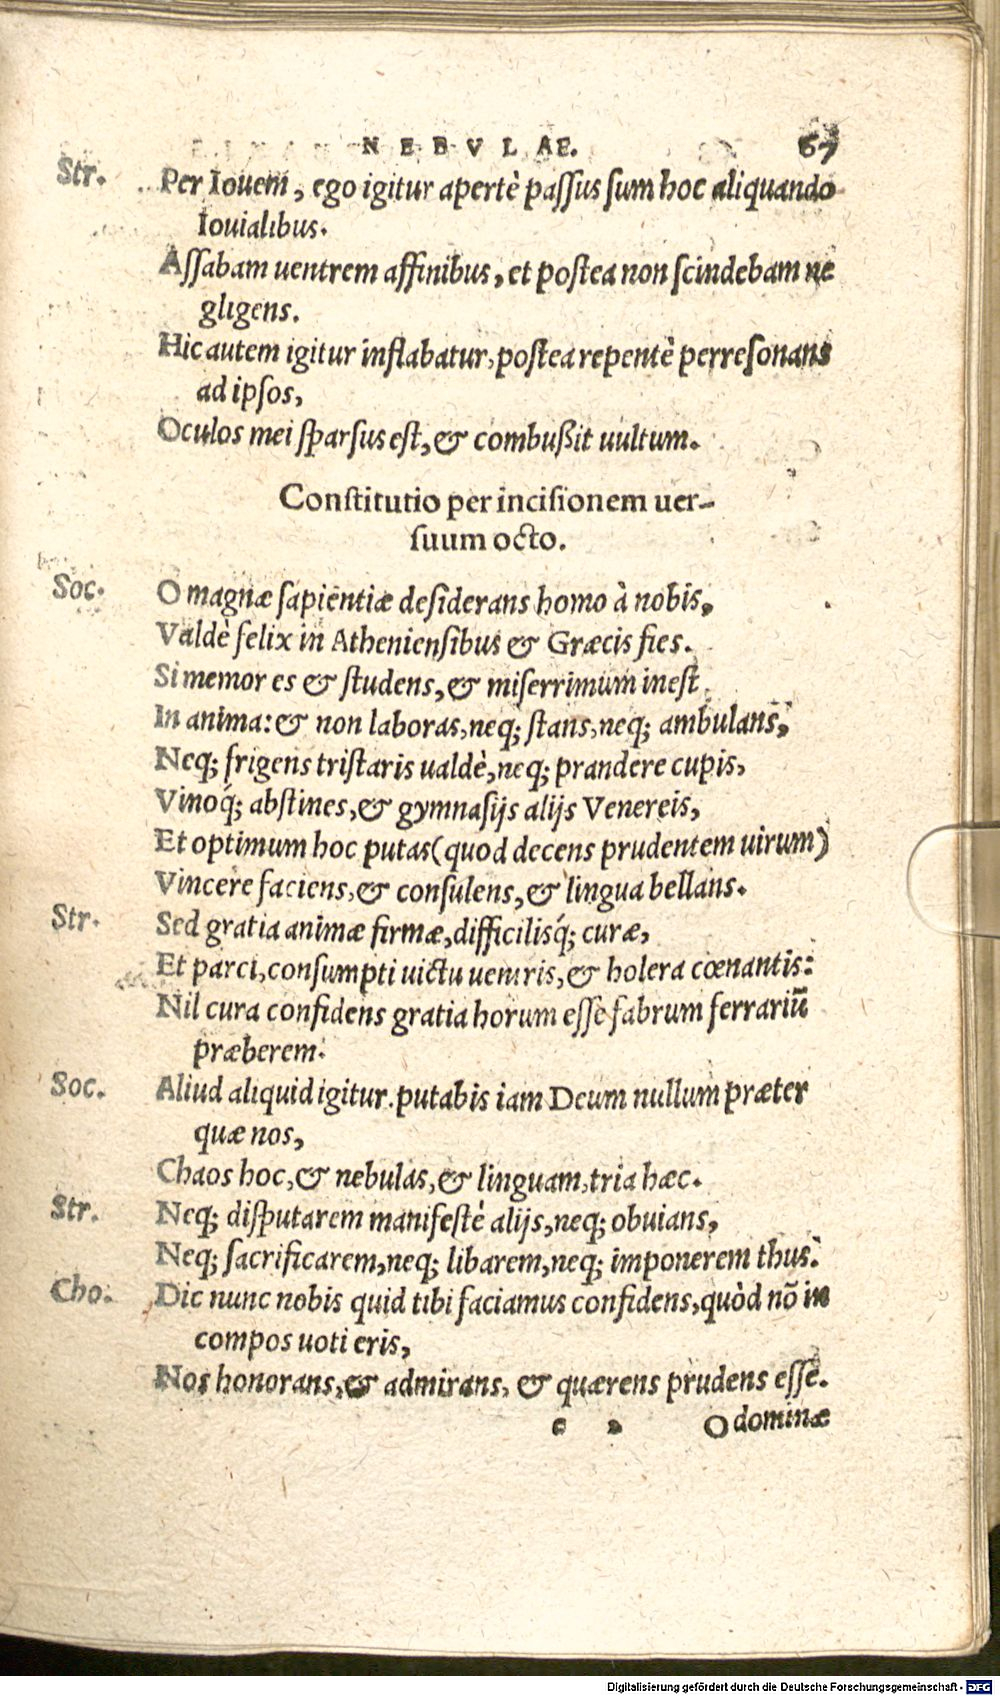 NEBVLAE. 67
Str. Per Iouem, ego igitur apertè paſſus ſum hoc aliquando
Iouialibus.
Aſſabam uentrem affinibus, et poſtea non ſcindebam ne
gligens.
Hic autem igitur inflabatur, poſtea repentè perreſonans
ad ipſos,
Oculos mei ſparſus eſt, & combußit uultum.
Conſtitutio per inciſionem uer-
ſuum octo.
Soc. O magnæ ſapientiæ deſiderans homo à nobis,
Valdè felix in Athenienſibus & Græcis fies.
Si memor es & ſtudens, & miſerrimum ineſt
In anima: & non laboras, neq; ſtans, neq; ambulans,
Neq; frigens triſtaris ualdè, neq; prandere cupis,
Vinoq́; abſtines, & gymnaſijs alijs Venereis,
Et optimum hoc putas (quod decens prudentem uirum)
Vincere faciens, & conſulens, & lingua bellans.
Str. Sed gratia animæ firmæ, difficilisq́; curæ,
Et parci, conſumpti uictu uentris, & holera cœnantis:
Nil cura confidens gratia horum eſſe fabrum ferrariũ
præberem.
Soc. Aliud aliquid igitur putabis iam Deum nullum præter
quæ nos,
Chaos hoc, & nebulas, & linguam, tria hæc.
Str. Neq; diſputarem manifeſtè alijs, neq; obuians,
Neq; ſacrificarem, neq; libarem, neq; imponerem thus.
Cho. Dic nunc nobis quid tibi faciamus confidens, quòd nõ in
compos uoti eris,
Nos honorans, & admirans, & quærens prudens eſſe.
O dominæ
Digitalisierung gefördert durch die Deutsche Forschungsgemeinschaft - DFG